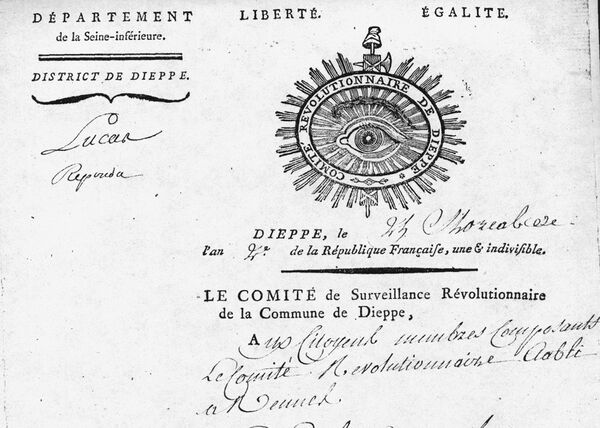 DÉPARTEMENT
de la Seine-inférieure.
DISTRICT DE DIEPPE.
Lucas
Reponda
LIBERTÉ. ÉGALITE.
COMITÉ REVOLUTIONNAIRE DE DIEPPE
DIEPPE, le
l'an 2e. de la République Françaiſe, une & indiviſible.
LE COMITÉ de Surveillance Révolutionnaire
de la Commune de Dieppe,
Aux Citoyens membres Composants
Le Comité Revolutionnaire
a Rennes.